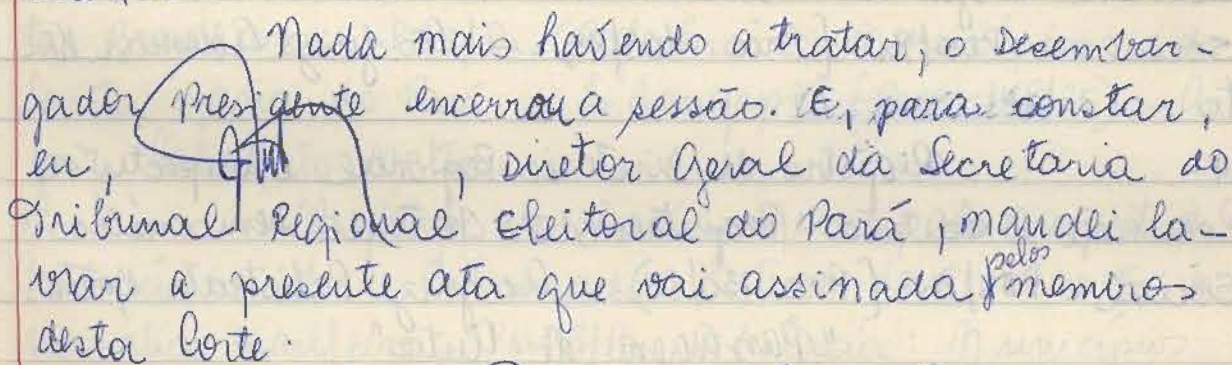 Nada mais havendo a tratar, o Desembar-
gador Presidente encerrou a sessão. E, para constar,
eu, , Diretor Geral da Secretaria do
Tribunal Regional Eleitoral do Pará, mandei la-
vrar a presente ata que vai assinada pelos membros
desta Corte.